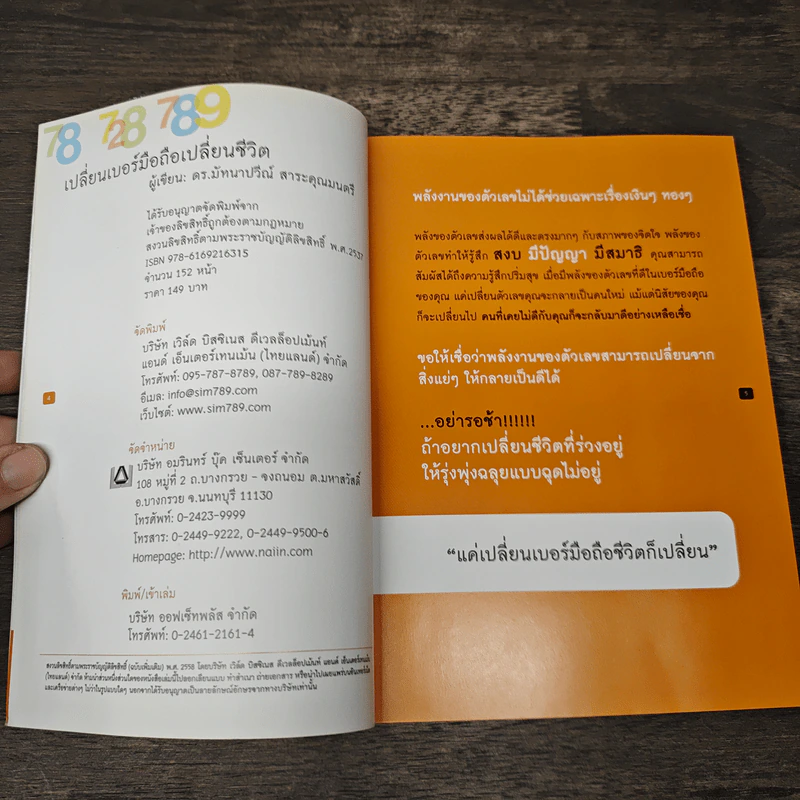 78 728 789
เปลี่ยนเบอร์มือถือเปลี่ยนชีวิต
ผู้เขียน: ดร.มัทนาปวีณ์ สาระคุณมนตรี
ได้รับอนุญาตจัดพิมพ์จาก
เจ้าของลิขสิทธิ์ถูกต้องตามกฎหมาย
สงวนลิขสิทธิ์ตามพระราชบัญญัติลิขสิทธิ์ พ.ศ.2537
ISBN 978-616921631S
จำนวน 152 หน้า
ราคา 149 บาท
จัดพิมพ์
บริษัท เวิล์ด บิสซิเนส ดีเวลล็อปเม้นท์
แอนด์ เอ็นเตอร์เทนเม้น (ไทยแลนด์) จำกัด
โทรศัพท์: 095-787-8789, 087-789-8289
อีเมล: info@sim789.com
เว็บไซต์: www.sim789.com
4
จัดจำหน่าย
บริษัท อมรินทร์ บุ๊ค เซ็นเตอร์ จำกัด
108 หมู่ที่ 2 ถ.บางกรวย - จงถนอม ต.มหาสวัสดิ์
อ.บางกรวย จ.นนทบุรี 11130
โทรศัพท์: 0-2423-9999
โทรสาร: 0-2449-9222, 0-2449-9500-6
Homepage: http://www.naiin.com
พิมพ์/เข้าเล่ม
บริษัท ออฟเซ็ทพลัส จำกัด
โทรศัพท์: 0-2461-2161-4
สงวนลิขสิทธิ์ตามพระราชบัญญัติลิขสิทธิ์ (ฉบับเพิ่มเติม) พ.ศ. 2558 โดยบริษัท เวิล์ด บิสซิเนส ดีเวลล็อปเม้นท์ แอนด์ เอ็นเตอร์เทนเม้น
(ไทยแลนด์) จำกัด ห้ามนำส่วนหนึ่งส่วนใดของหนังสือเล่มนี้ไปลอกเลียนแบบ ทำสำเนา ถ่ายเอกสาร หรือนำไปเผยแพร่บนอินเทอร์เน็ต
และเครือข่ายต่างๆ ไม่ว่าในรูปแบบใดๆ นอกจากได้รับอนุญาตเป็นลายลักษณ์อักษรจากทางบริษัทเท่านั้น
พลังงานของตัวเลขไม่ได้ช่วยเฉพาะเรื่องเงินๆ ทองๆ
พลังของตัวเลขส่งผลได้ดีและตรงมากๆ กับสภาพของจิตใจ พลังของ
ตัวเลขทำให้รู้สึก สงบ มีปัญญา มีสมาธิ คุณสามารถ
สัมผัสได้ถึงความรู้สึกปริ่มสุข เมื่อมีพลังของตัวเลขที่ดีในเบอร์มือถือ
ของคุณ แค่เปลี่ยนตัวเลขคุณจะกลายเป็นคนใหม่ แม้แต่นิสัยของคุณ
ก็จะเปลี่ยนไป คนที่เคยไม่ดีกับคุณก็จะกลับมาดีอย่างเหลือเชื่อ
ขอให้เชื่อว่าพลังงานของตัวเลขสามารถเปลี่ยนจาก
สิ่งแย่ๆ ให้กลายเป็นดีได้
5
...อย่ารอช้า!!!!!!
ถ้าอยากเปลี่ยนชีวิตที่ร่วงอยู่
ให้รุ่งพุ่งฉลุยแบบฉุดไม่อยู่
“แค่เปลี่ยนเบอร์มือถือชีวิตก็เปลี่ยน”